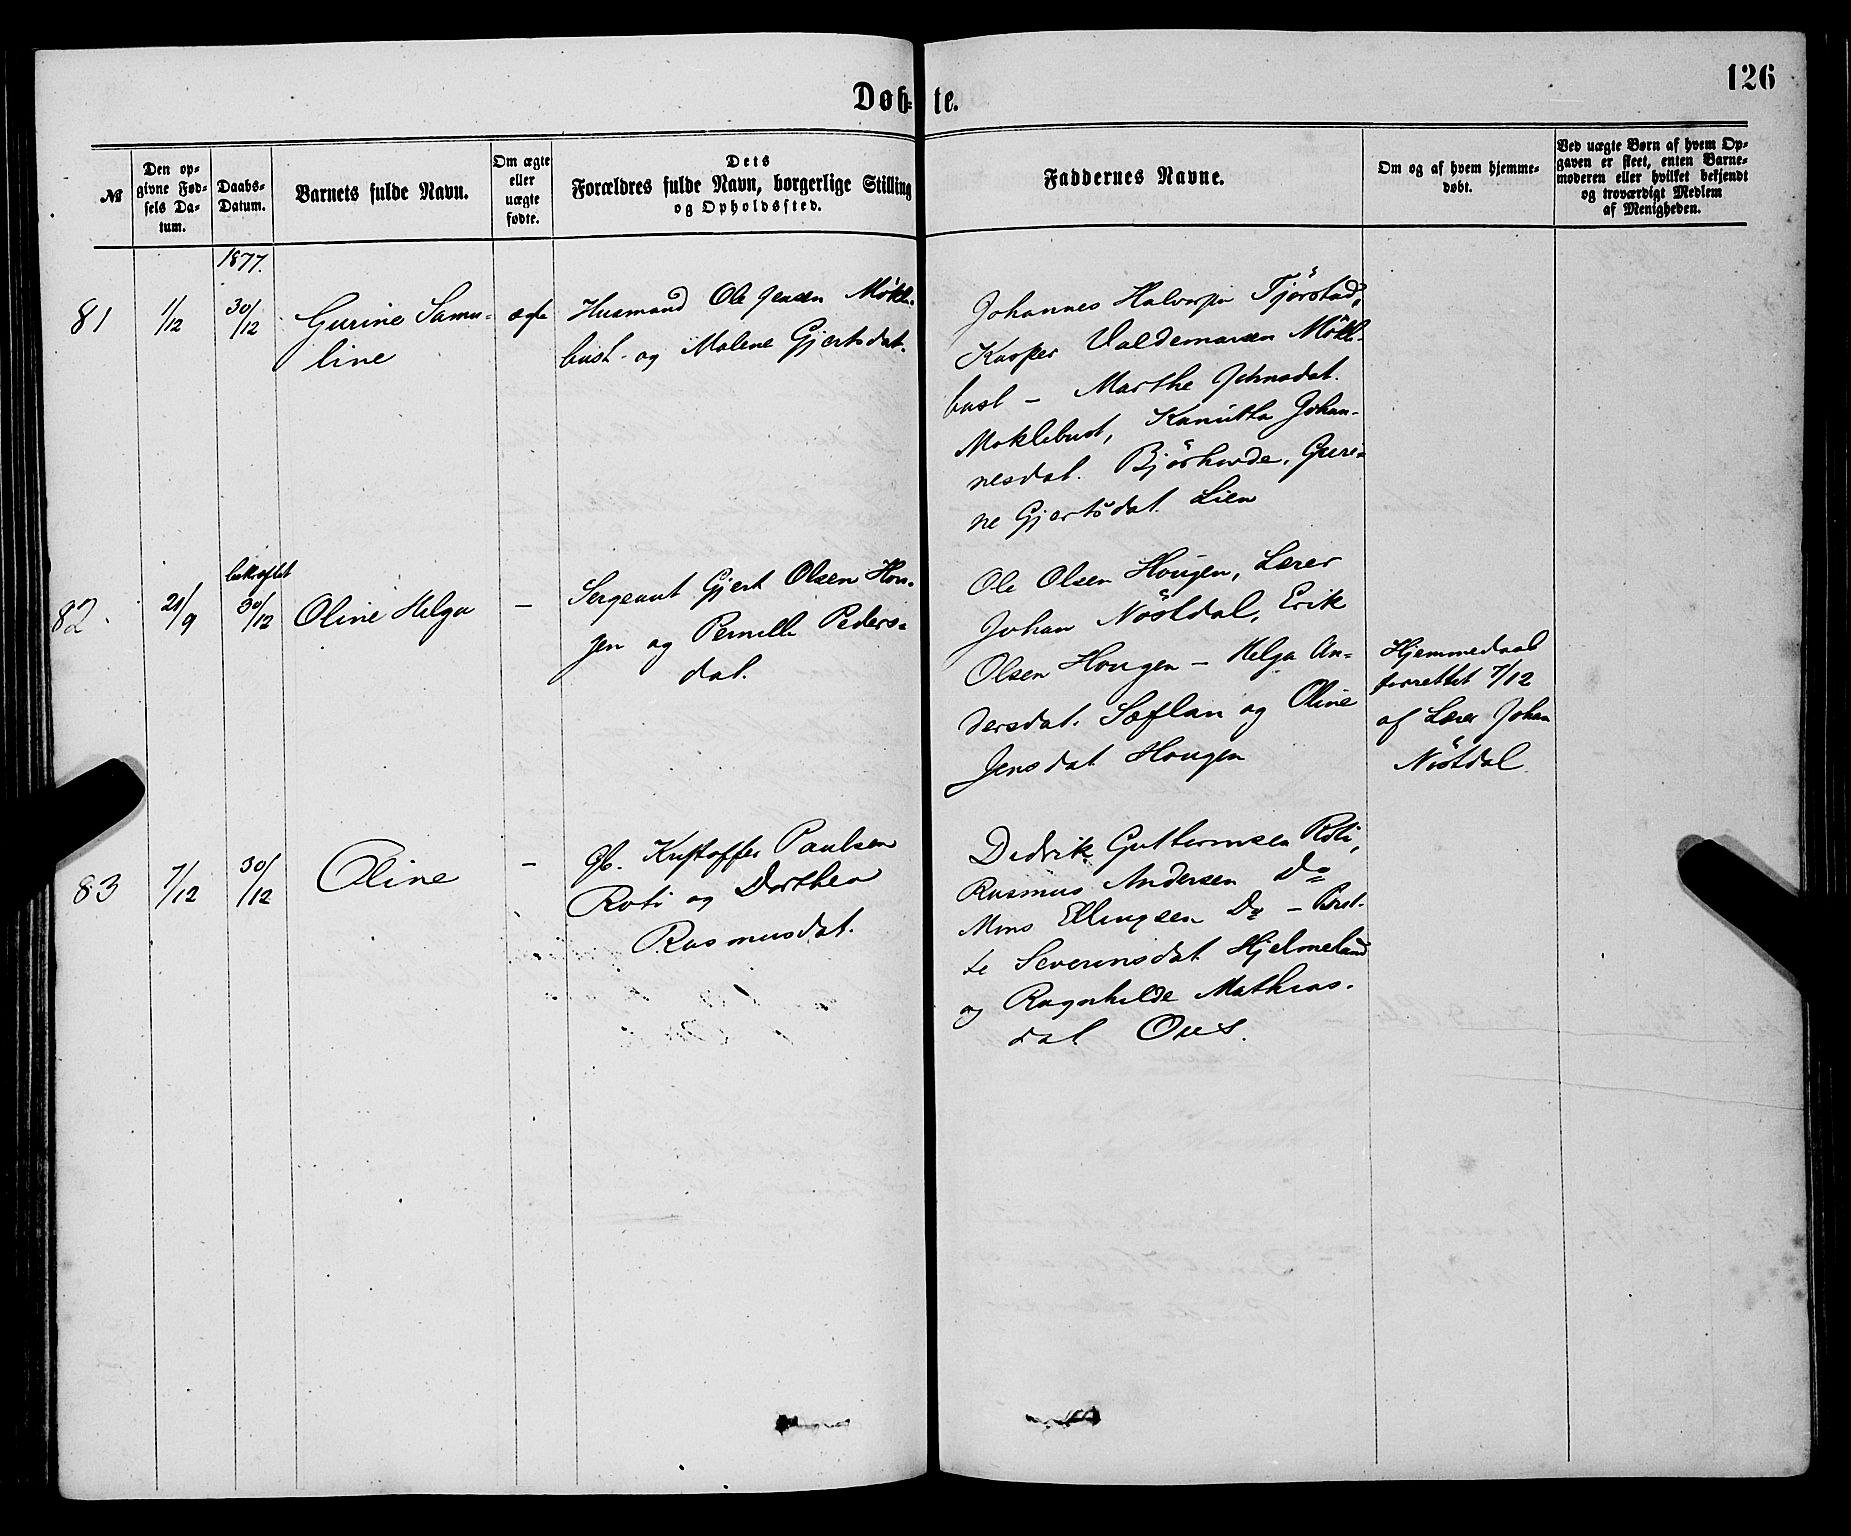 126
Døb- te.
№
Den op-
givne Fød-
sels Da-
tum.
Daabs-
Datum.
Barnets fulde Navn.
Om ægte
eller
uægte
fødte.
Dets
Forældres fulde Navn, borgerlige Stilling
og Opholdssted.
Faddernes Navne.
Om og af hvem hjemme-
døbt.
Ved uægte Børn af hvem Op-
gaven er skeet, enten Barne-
moderen eller hvilket bekjendt
og troværdigt Medlem
af Menigheden.
1877.
81
1/12
30/12
Gurine Samu-
line
ægte
Husmand Ole Jensen Møkle-
bust og Malene Gjertsdat.
Johannes Halvorsen Tjørstad,
Kasper Valdemarsen Møkle-
bust - Marthe Johnsdat.
Moklebust, Kanutta Johan-
nesdat. Guri-
ne Gjertsdat. Lien
82.
21/9
bekræftet
30/12
Oline Helga
-
Sergeant Gjert Olsen Hou-
gen og Pernille Peders-
dat.
Ole Olsen Hougen, Lærer
Johan Nøstdal, Erik
Olsen Hougen - Helga An-
dersdat. Sæflan og Oline
Jensdat Hougen
Hjemmedaab
forrettet 7/12
af Lærer Johan
Nöstdal.
83
7/12
30/12
Oline
-
Gb. Kristoffer Paulsen
Roti og Dorthea
Rasmusdat.
Didrik Guttormsen Roti,
Rasmus Andersen Do
Mons Ellingsen Do - Brit-
te Severinsdat Hjelmeland
og Ragnhilde Mathias-
dat Ous.